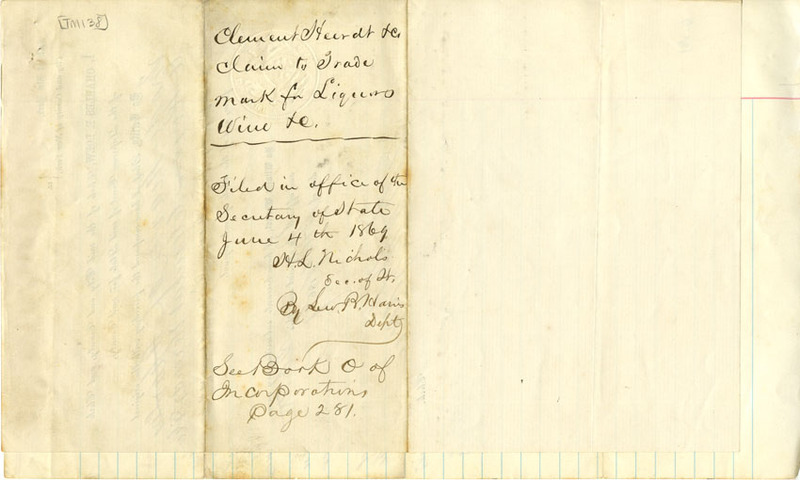 [TM138]
Clement Heerdt &c
Claim to Trade
Mark for Liquors
Wine &c.
Filed in office of the
Secretary of State
June 4th 1869
H.L. Nichols
Sec. of St.
By Lew. B. Harris
Depty
See Book O of
Incorporations
Page 281.